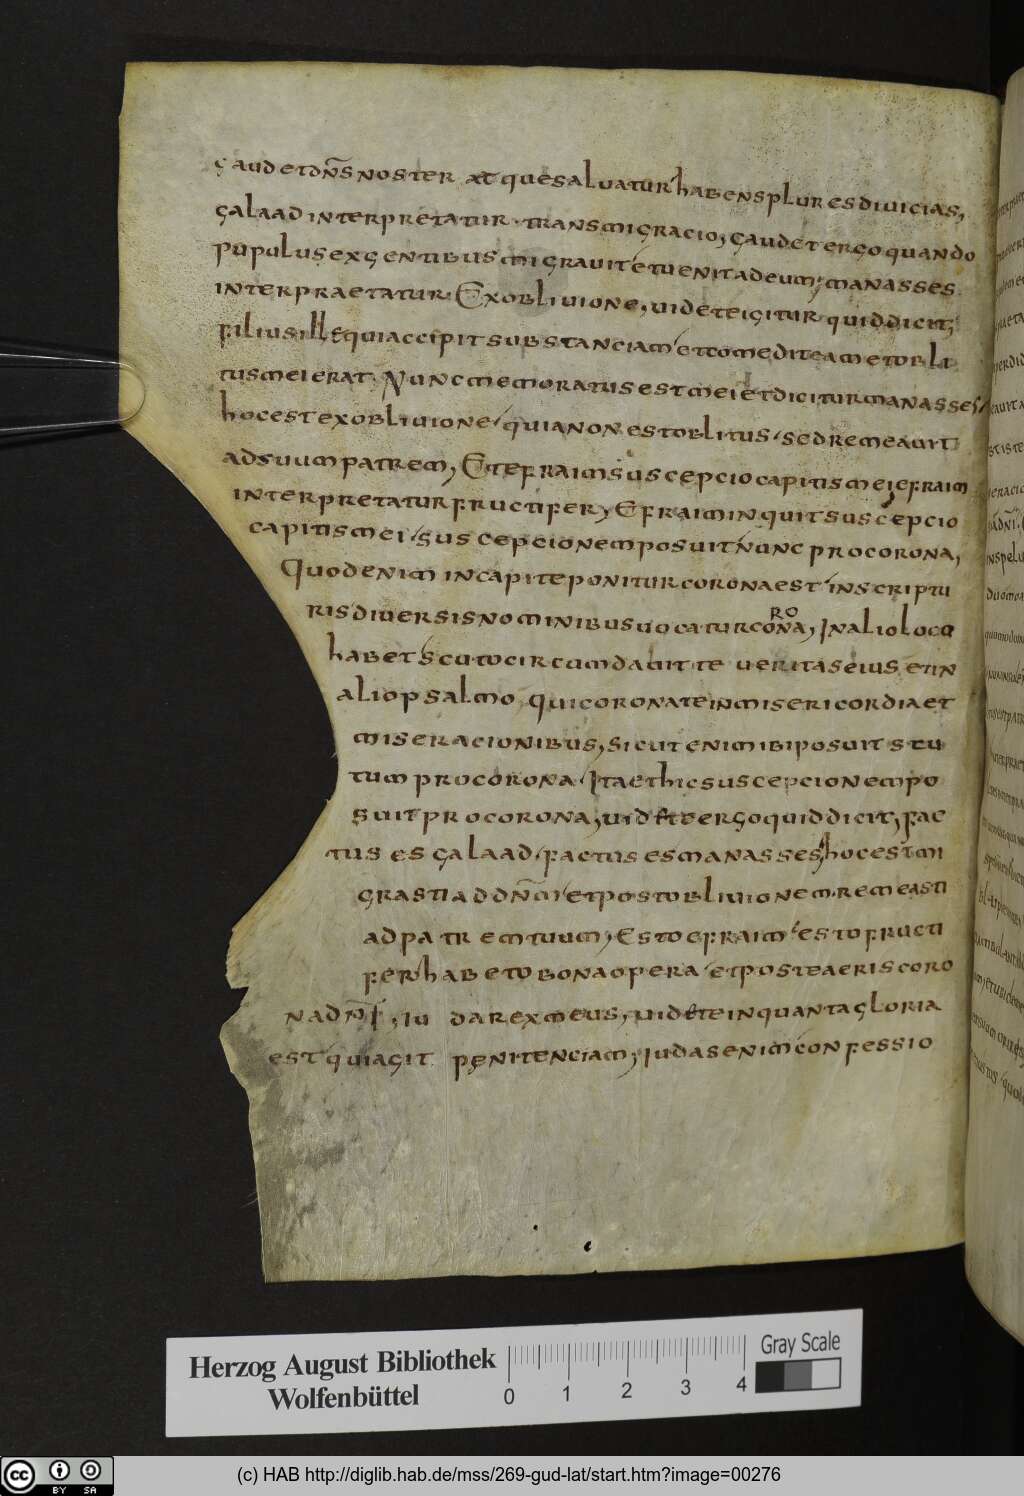 gaudet dns noster atque saluatur habens plures diuicias,
galaad interpretatur transmigracio, gaudet ergo quando
pupulus ex gentibus migrauit et uenit ad eum; manasses
interpraetatur. Ex obliuione, uidete igitur quid dicit,
filius ille qui accipit substanciam et comedit eam et obli
tus mei erat. Nunc memoratus est mei et dicitur manasses
hoc est ex obliuione quia non est oblitus sed remeauit
ad suum patrem, Et efraim suscepcio capitis mei efraim
interpretatur fructifer, Efraim inquit suscepcio
capitis mei suscepcionem posuit nunc pro corona,
Quod enim in capite ponitur corona est inscriptu
ris diuersis nominibus uocatur corona, In alio loco
habet scuto circumdauit te ueritas eius et in
alio psalmo, qui coronate in misericordia et
miseracionibus, sicut enim ibi posuit scu
tum pro corona Ita et hic suscepcionem po
suit pro corona, uidete ergo quid dicit, fac
tus es galaad factus es manasses, hoc est mi
grasti ad dnm et post obliuionem remeasti
ad patrem tuum, Esto efraim esto fructi
fer habeto bona opera et postea eris coro
na dni, Iu da rex meus, uidete in quanta gloria
est qui agit penitenciam, iudas enim confessio
Herzog August Bibliothek
Wolfenbüttel
0 1 2 3 4
Gray Scale
cc BY SA
(c) HAB http://diglib.hab.de/mss/269-gud-lat/start.htm?image=00276